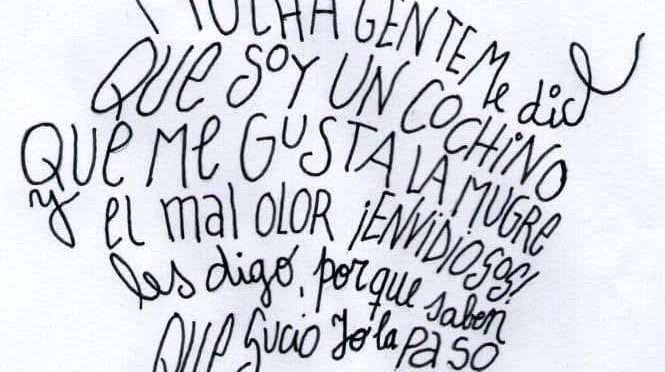 MUCHA GENTE Me dice
Que SOY UN COCHiNO
QUe Me GUSTA LA MUGRe
y el mal OLOR ¡ENViDiOSOS!
les digo, porque saben
QUe SUCiO Yo la PASO